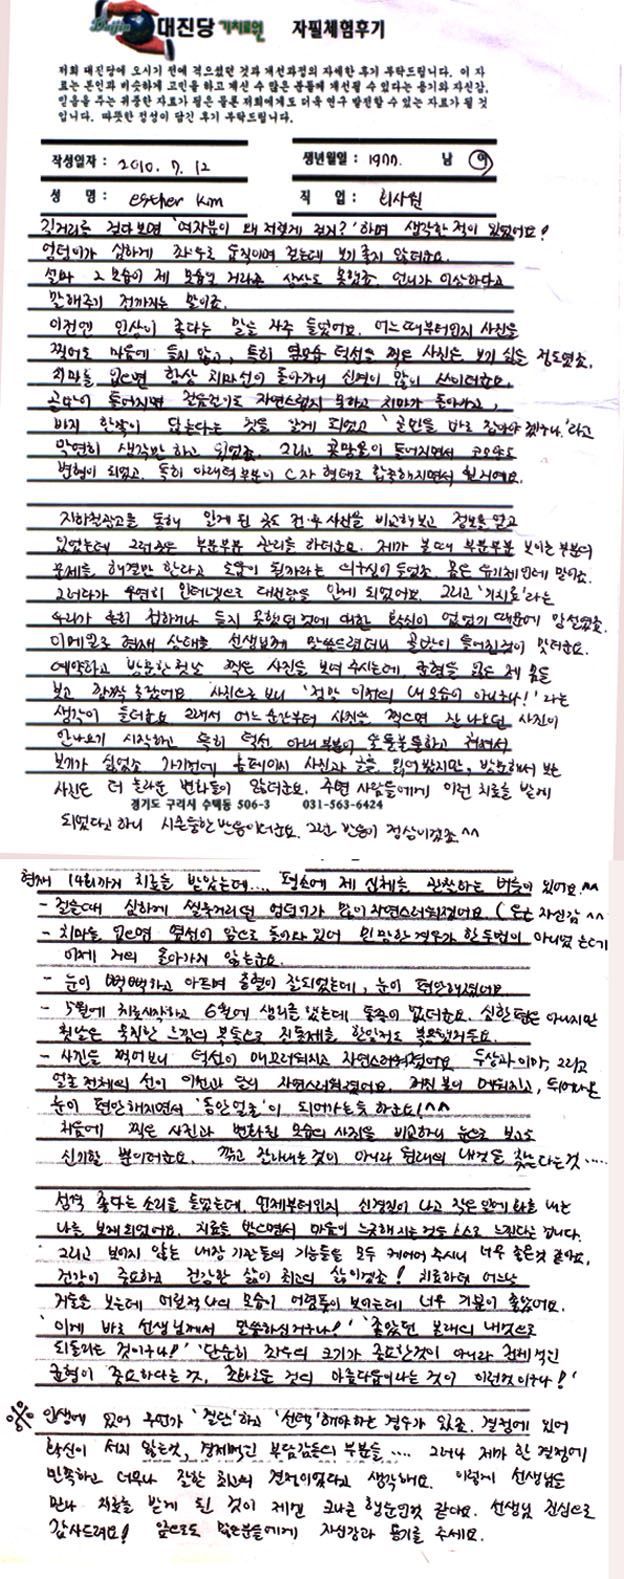 Daijin 대진당 기치료원 자필체험후기
저희 대진당에 오시기 전에 겪으셨던 것과 개선과정의 자세한 후기 부탁드립니다. 이 자
료는 본인과 비슷하게 고민을 하고 계신 수 많은 분들께 개선될 수 있다는 용기와 자신감,
믿음을 주는 귀중한 자료가 됨은 물론 저희에게도 더욱 연구 발전할 수 있는 자료가 될 것
입니다. 따뜻한 정성이 담긴 후기 부탁드립니다.
작성일자 : 2010. 7. 12 생년월일 : 1977. 남 여
성 명 : esther kim 직 업 : 회사원
길거리를 걷다보면 '여자분이 왜 저렇게 걷지?' 하며 생각한 적이 있었어요!
엉덩이가 심하게 좌우로 움직이며 걷는데 보기 좋지 않더군요.
설마 그 모습이 제 모습일 거라곤 상상도 못했죠. 언니가 이상하다고
말해주기 전까지는 말이죠.
이전엔 인상이 좋다는 말을 자주 들었어요. 어느 때부터인지 사진을
찍어도 마음에 들지 않고, 특히 옆모습 턱선을 찍은 사진은 보기 싫을 정도였죠.
치마를 입으면 항상 치마선이 돌아가니 신경이 많이 쓰이더군요.
골반이 틀어지면 걸음걸이도 자연스럽지 못하고 치마가 돌아가고,
바지 한쪽이 닳는다는 것을 알게 되었고 '골반을 바로 잡아야겠구나.'라고
막연히 생각만 하고 있었죠. 그리고 골반이 틀어지면서
변형이 되었고, 특히 아래턱 부분이 C자 형태로
지하철광고를 통해 알게 된 곳도 전·후 사진을 비교해보고 정보를 얻고
있었는데 그런곳은 부분부분 관리를 하더군요. 제가 볼때 부분부분 보이는 부분의
문제를 해결만 한다고 도움이 될까라는 의구심이 들었죠. 몸은 유기체인데 말이죠.
그러다가 우연히 인터넷으로 대진당을 알게 되었어요. 그리고 '기치료'라는
우리가 흔히 접하거나 듣지 못했던 것에 대한 확신이 없었기 때문에 망설였죠.
이메일로 현재 상태를 선생님께 말씀드렸더니 골반이 틀어진것이 맞더군요.
예약하고 방문한 첫날 찍은 사진을 보여 주시는데, 균형을 잃은 제 몸을
보고 깜짝 놀랐어요. 사진으로 보니 '정말 이전의 내 모습이 아니구나!' 라는
생각이 들더군요. 그래서 어느 순간부터 사진을 찍으면 잘 나오던 사진이
안나오기 시작하고 특히 턱선 아래 부분이 울퉁불퉁하고 처져서
보기가 싫었죠 가기전에 홈페이지 사진과 글을 읽어 봤지만, 방문해서 보는
사진은 더 놀라운 변화들이 있더군요. 주변 사람들에게 이런 치료를 받게
경기도 구리시 수택동 506-3 031-563-6424
되었다고 하니 시큰둥한 반응이더군요. 그런 반응이 정상이겠죠^^
현재 14회까지 치료를 받았는데.... 평소에 제 신체를 관찰하는 버릇이 있어요.^^
- 걸을때 심하게 씰룩거리던 엉덩이가 많이 자연스러워졌어요. ( 자신감 ^^
- 치마를 입으면 옆선이 앞으로 돌아와 있어 민망한 경우가 한두번이 아니었는데
이제 거의 돌아가지 않는군요.
- 눈이 빡빡하고 아프며 충혈이 잘되었는데, 눈이 편안해졌어요.
- 5월에 치료시작하고 6월에 생리를 했는데 통증이 없더군요. 심한편은 아니지만
첫날은 묵직한 느낌의 복통으로 진통제를 한알정도 복용했거든요.
- 사진을 찍어보니 턱선이 매끄러워지고 자연스러워졌어요. 두상과 이마, 그리고
얼굴 전체의 선이 이전과 달리 자연스러워졌어요. 꺼진 볼이 메워지고, 튀어나온
눈이 편안해지면서 '동안얼굴'이 되어가는듯 하군요!^^
처음에 찍은 사진과 변화된 모습의 사진을 비교하니 눈으로 보고도
신기할 뿐이더군요. 깎고 잘라내는것이 아니라 원래의 내것을 찾는다는 것.....
성격 좋다는 소리를 들었는데, 언제부터인지 신경질이 나고 작은 일에 화를 내는
나를 보게되었어요. 치료를 받으면서 마음이 느긋해지는것을 스스로 느낀다는 겁니다.
그리고 보이지 않는 내장 기관들의 기능들을 모두 케어해 주시니 너무 좋은것 같아요.
건강이 중요하고 건강한 삶이 최고의 삶이겠죠! 치료하며 어느날
거울을 보는데 어릴적 나의 모습이 어렴풋이 보이는데 너무 기분이 좋았어요.
'이게 바로 선생님께서 말씀하신거구나!' '좋았던 본래의 내것으로
되돌리는 것이구나!' '단순히 좌우의 크기가 중요한것이 아니라 전체적인
균형이 중요하다는 것, 조화로운 것의 아름다움이라는 것이 이런것이구나!'
※ 인생에 있어 무언가 '결단'하고 '선택'해야하는 경우가 있죠. 결정에 있어
확신이 서지 않는것, 경제적인 부담감등의 부분들.... 그러나 제가 한 결정에
만족하고 너무나 잘한 최고의 결정이었다고 생각해요. 이렇게 선생님을
만나 치료를 받게 된 것이 제겐 크나큰 행운인것 같아요. 선생님 진심으로
감사드려요! 앞으로도 많은분들에게 자신감과 용기를 주세요.